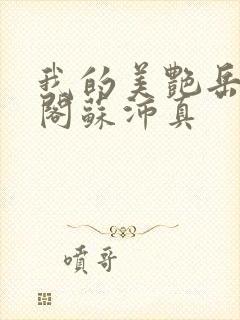 我的美艷岳
閣蘇沛真
噴哥